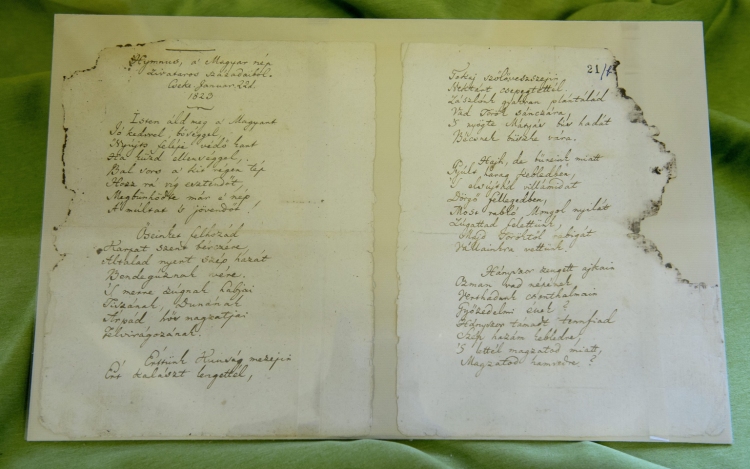 Hymnus, a Magyar nép
zivataros századaiból.
Cseke Januar. 22d.
1823
Isten áldd meg a Magyart
Jó kedvvel, bőséggel,
Nyujts feléje védő kart
Ha küzd ellenséggel,
Bal sors a kit régen tép
Hozz rá víg esztendőt,
Megbünhödte már e nép
A multat s jövendőt!
Őseinket felhozád
Karpat szent bérczére,
Általad nyert szép hazát
Bendegúznak vére.
'S merre zúgnak habjai
Tiszának, Dunának
Árpád hős magzatjai
Felvirágozának.
Értünk Kunság mezején
Ért kalászt lengettél,
21/
Tokaj szőlővesszején
Nektárt csepegtettél.
Zászlónk gyakran plántálád
Vad Török sánczára
'S nyögte Mátyás bús hadát
Bécsnek büszke vára.
Hajh, de bűneink miatt
Gyúlt harag kebledben,
'S elsújtád villámidat
Dörgő fellegedben,
Most rabló Mongol nyilát
Zúgattad felettünk,
Majd Töröktől rabigát
Vállainkra vettünk.
Hányszor zengett ajkain
Ozman vad népének
Vert hadunk csonthalmain
Győzedelmi ének?
Hányszor támadt tennfiad
Szép hazám kebledre,
'S lettél magzatod miatt
Magzatod hamvedre?